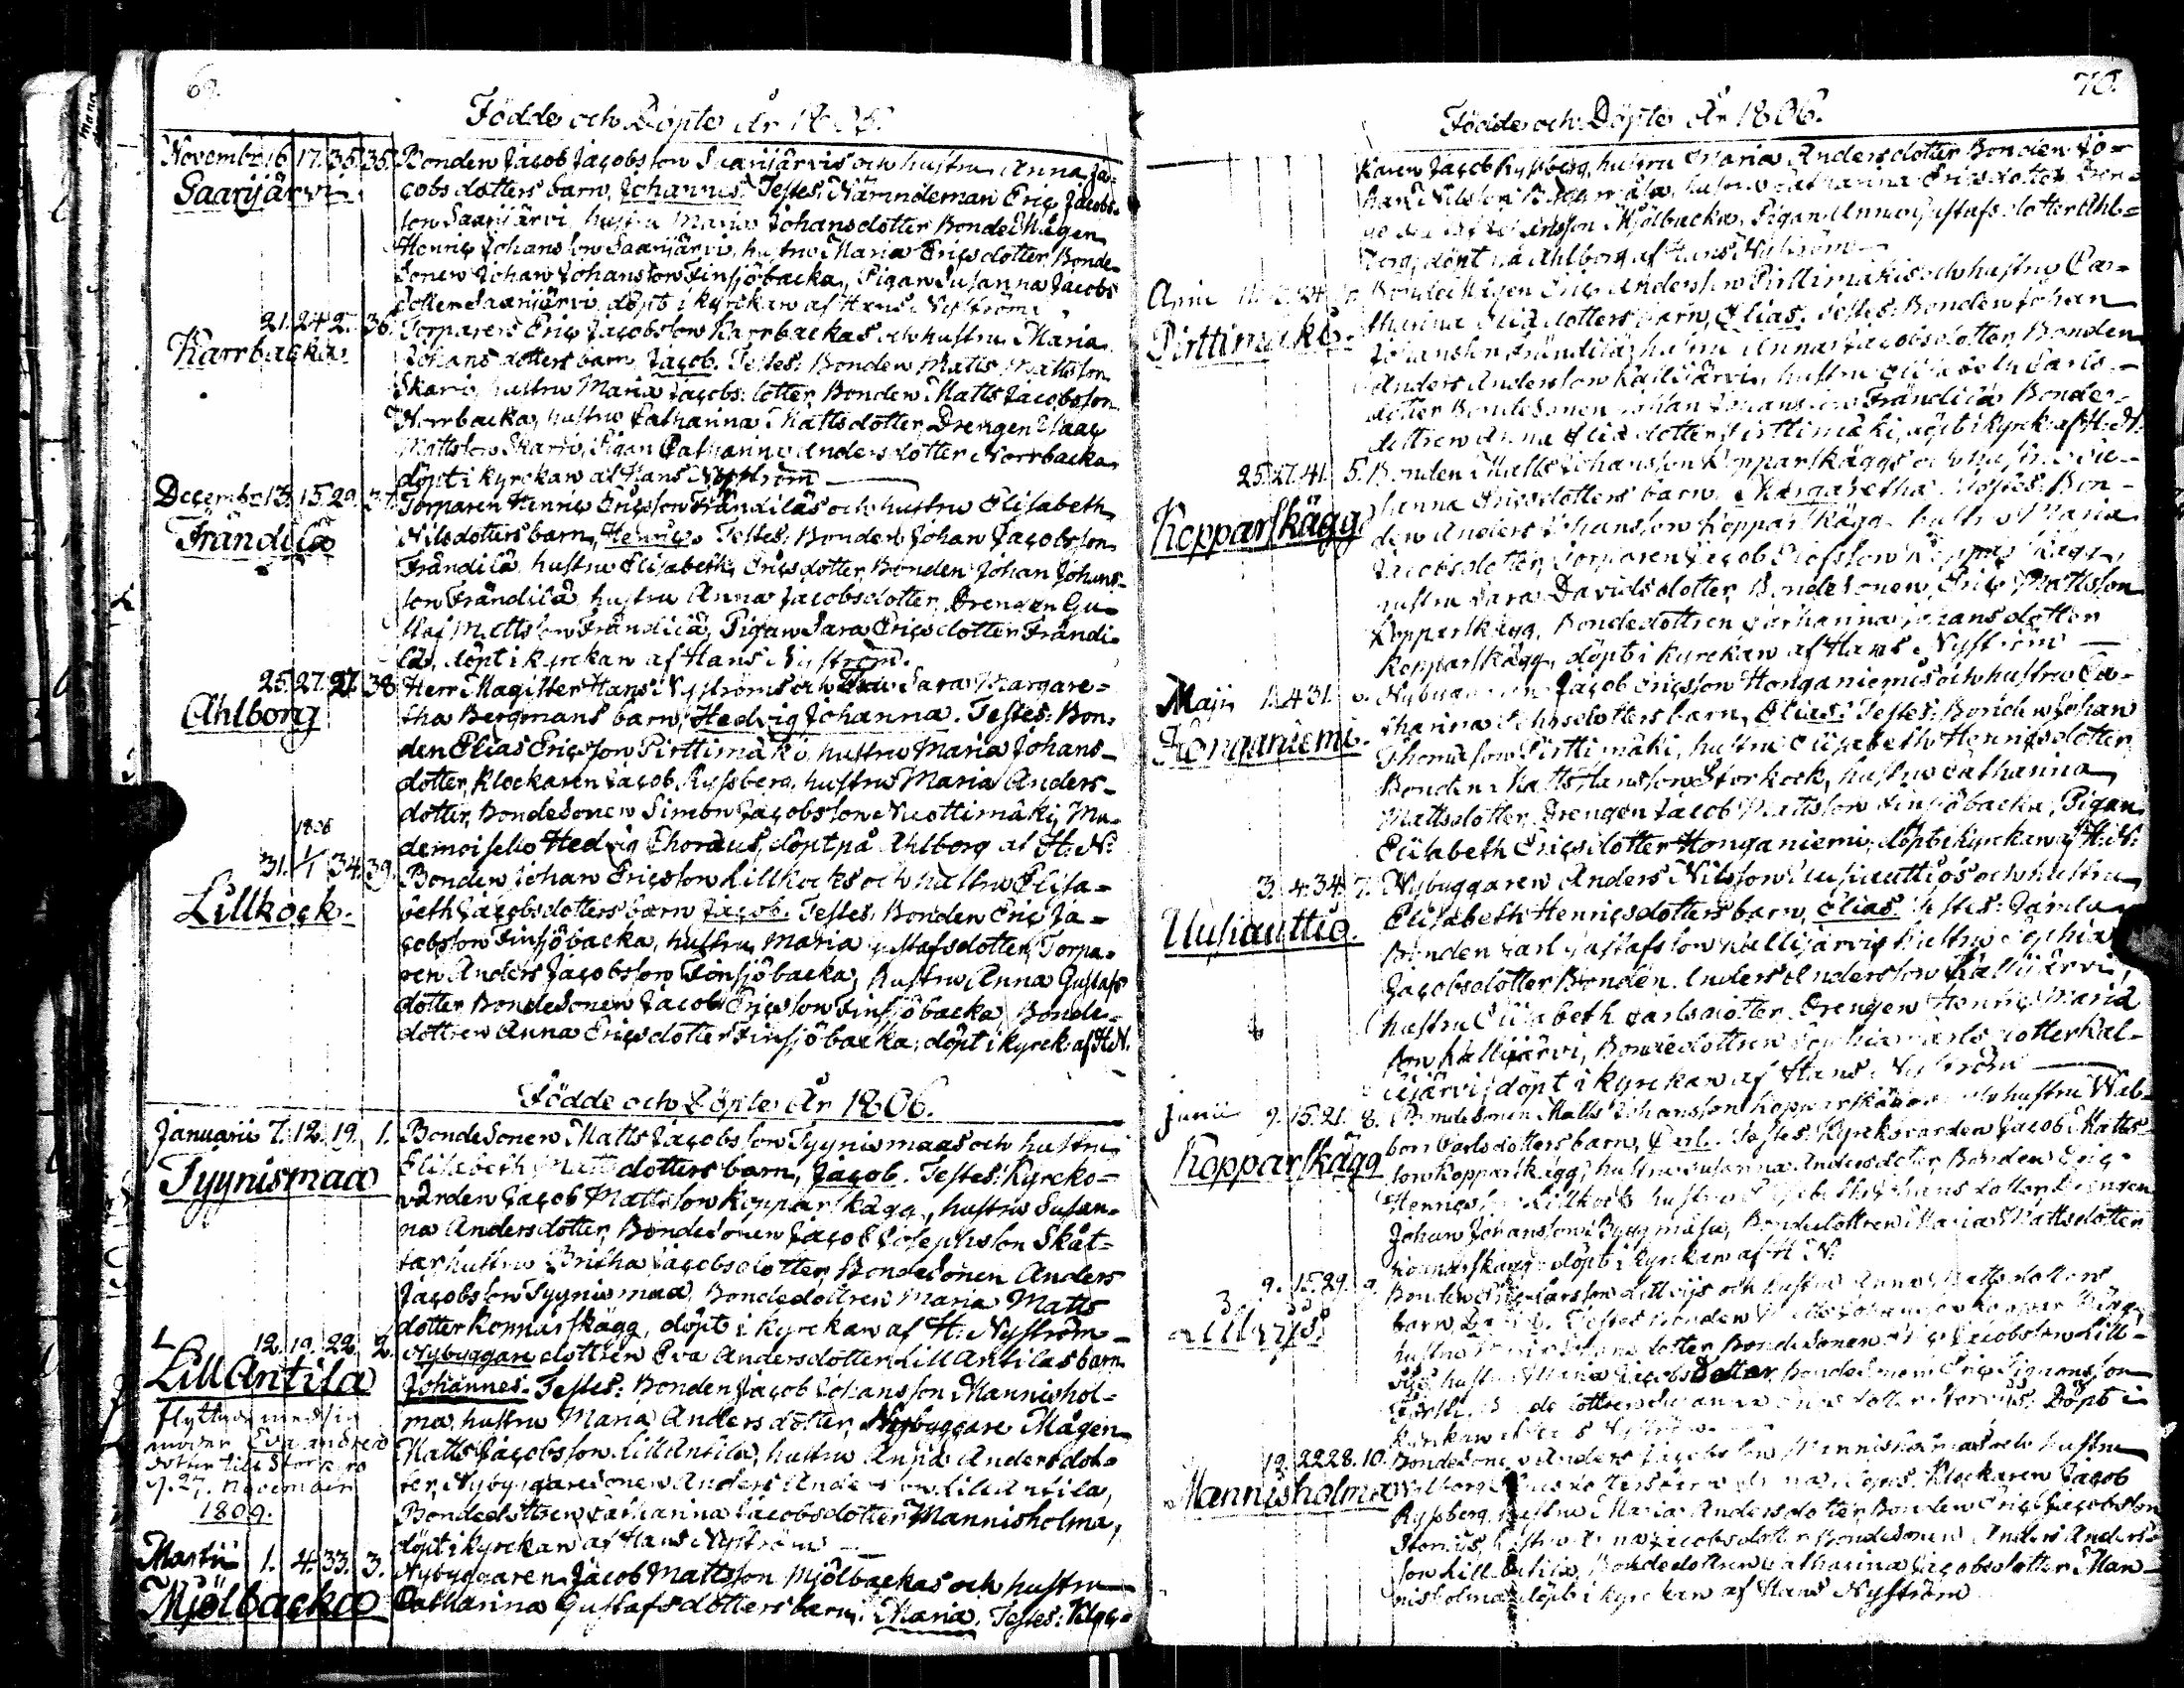 69.
Födde och Döpte År 1805.
Novembr 16. 17. 35. 35. Bonden Jacob Jacobsson Saarijärvis och hustru Anna Ja-
Saarijärvi cobsdotters barn, Johannes. Testes: Nämndeman Eric Jacobs-
son Saarijärvi hustru Maria Johansdotter BondeMågen
Henric Johansson Saarijärvi, hustru Maria Ericsdotter, Bonde-
sonen Johan Johansson Finsjöbacka, Pigan Susanna Jacobs
dotter Saarijärvi, döpt i kyrckan af Hans Nyström
21. 24. 2 . 36. Torparen Eric Jacobsson Karrbackas och hustru Maria
Karrbacka Johansdotters barn Jacob. Testes: Bonden Matts Mattsson
Skarv, hustru Maria Jacobsdotter, Bonden Matts Jacobsson
Norrbacka, hustru Catharina Mattsdotter, Drengen Isaac
Mattsson Skarv, Pigan Catharina Andersdotter Norrbacka
döpt i kyrckan af Hans Nyström
Decembr 13. 15. 29. 37. Torparen Henric Ericsson Frändiläs och hustru Elisabeth
Frändilä Nilsdotters barn, Henric. Testes: Bonden Johan Jacobsson
Frändilä hustru Elisabeth Ericsdotter, Bonden Johan Johans-
son Frändilä hustru Anna Jacobsdotter, Drengen Gu-
staf Mattsson Frändilä, Pigan Sara Ericsdotter Frändi-
lä, döpt i kyrckan af Hans Nyström.
25. 27. 27. 38. Herr Magister Hans Nyströms och Fru Sara Margare-
Ahlborg tha Bergmans barn, Hedvig Johanna. Testes: Bon-
den Elias Ericsson Pirttimäki, hustru Maria Johans-
dotter, Klockaren Jacob Ryssberg, hustru Maria Anders-
dotter, BondeSonen Simon Jacobsson Nuottimäki, Ma-
demoiselle Hedvig Choraus, döpt på Ahlborg af H: N:
1806
31. 1/1 34. 39. Bonden Johan Ericsson Lillkocks och hustru Elisa-
Lillkock. beth Jacobsdotters barn Jacob. Testes: Bonden Eric Ja-
cobsson Finsjöbacka, hustru Maria Gustafsdotter, Torpa-
ren Anders Jacobsson Finsjöbacka, hustru Anna Gustafs
dotter, BondeSonen Jacob Ericsson Finsjöbacka, Bonde-
dottren Anna Ericsdotter Finsjöbacka, döpt i kyrck: af H. N.
Födde och Döpte År 1806.
Januarii 7. 12. 19. 1. BondeSonen Matts Jacobsson Tyynismaas och hustru
Tyynismaa Elisabeth Mattsdotters barn, Jacob. Testes: Kyrcko-
värden Jacob Mattsson Kopparskägg, hustru Susan-
na Andersdotter, BondeSonen Jacob Josephsson Skåt-
tar hustru Britha Jacobsdotter, BondeSonen Anders
Jacobsson Tyynismaa, Bondedottren Maria Matts
dotter Kopparskägg, döpt i kyrckan af H: Nyström
12. 19. 22. 2. Nybyggare dottren Eva Andersdotter LillAntilas barn
LillAntila Johannes. Testes: Bonden Jacob Johansson Mannishol-
flyttade med sin ma, hustru Maria Andersdotter, Nybyggare Mågen
moder Eva Anders Matts Jacobsson LillAntila, hustru Anna Andersdot-
dotter till Storkyro ter, NybyggareSonen Anders Andersson LillAntila,
d. 27. November Bondedottren Catharina Jacobsdotter Mannisholma,
1809. döpt i kyrckan af Hans Nyström
Martii 1. 4. 33. 3. Nybyggaren Jacob Mattsson Mjölbackas och hustru
Mjölbacka Catharina Gustafsdotters barn, Maria. Testes: Kloc-
70.
Födde och Döpte År 1806.
karen Jacob Ryssberg, hustru Maria Andersdotter Bonden Jo-
han Nilsson hustru Catharina Ericsdotter, Bon-
Mjölbacka, Pigan Anna Gustafsdotter Ahl-
borg, döpt på Ahlborg af Hans Nyström
BondeMågen Eric Andersson Pirttimäkis och hustru Ca-
Pirttimäki. tharina dotters barn, Elias. Testes: Bonden Johan
Johansson Frändilä, hustru Anna Jacobsdotter, Bonden
Anders Andersson Kallijärvi, hustru Elisabeth Carls-
dotter BondeSonen Johan Johansson Frändilä Bonde-
dottren Anna dotter Pirttimäki, döpt i kyrck: af H. N.
25. 27. 41. 5. Bonden Matts Johansson Kopparskäggs och hustru Su-
Kopparskägg sanna Ericsdotters barn, Margaretha. Testes: Bon-
den Anders Johansson Kopparskägg, hustru Maria
Jacobsdotter, Torparen Jacob Kopparskägg,
hustru Sara Davidsdotter, BondeSonen Eric Mattsson
Kopparskägg, Bondedottren Catharina Johansdotter
Kopparskägg, döpt i kyrckan af Hans Nyström
Maji 1. 4. 31. 6. Nybyggaren Jacob Ericsson Honganiemis och hustru Ca-
Honganiemi. tharina dotters barn, Elias. Testes: Bonden Johan
Thomasson Pirttimäki, hustru Elisabeth Henricsdotter,
Bonden Matts Hansson Storkock, hustru Catharina
Mattsdotter, Drengen Jacob Mattsson Finsjöbacka, Pigan
Elisabeth Ericsdotter Honganiemi, döpt i kyrckan af H: N:
3. 4. 34. 7. Nybyggaren Anders Nilsson Uusiauttios och hustru
Uusiauttio. Elisabeth Henricsdotters barn, Elias. Testes: Gamla
Bonden Carl Gustafsson Kallijärvi, hustru Sophia
Jacobsdotter Bonden Anders Andersson Kallijärvi,
hustru Elisabeth Carlsdotter, Drengen Henric
son Kallijärvi, Bondedottren Sophia Carlsdotter Kal-
lijärvi, döpt i kyrckan af Hans Nyström
Junii 9. 15. 21. 8. BondeSonen Matts Johansson Kopparskäggs och hustru Wal-
Kopparskägg bor Carlsdotters barn, Carl. Testes: Kyrckovärden Jacob Matts-
son Kopparskägg, hustru Susanna Andersdotter, Bonden Eric
Henricsson Lillkock hustru Elisabeth Johansdotter, Drengen
Johan Johansson Byggmäster, Bondedottren Maria Mattsdotter
Kopparskägg, döpt i kyrckan af H. N:
9. 15. 29. 9. Bonden Larsson Lillvijs och hustru Anna Mattsdotters
Lillvijs. barn, Testes: Bonden Matts Johansson Kopparskägg,
hustru dotter, BondeSonen Jacobsson Lill-
vijs, hustru Jacobs Dotter, BondeSonen Eric Sigfridsson
dottren Susanna dotter Storvijs, Döpt i
kyrckan af Hans Nyström
19. 22. 28. 10. BondeSonen Anders Jacobsson Mannisholmas och hustru
Mannisholma Walborg dotters barn Anna. Testes: Klockaren Jacob
Ryssberg, hustru Maria Andersdotter, Bonden Eric Jacobsson
Storvijs, hustru Anna Jacobsdotter BondeSonen Anders Anders-
son LillAntila, Bondedottren Catharina Jacobsdotter Man-
nisholma, döpt i kyrckan af Hans Nyström